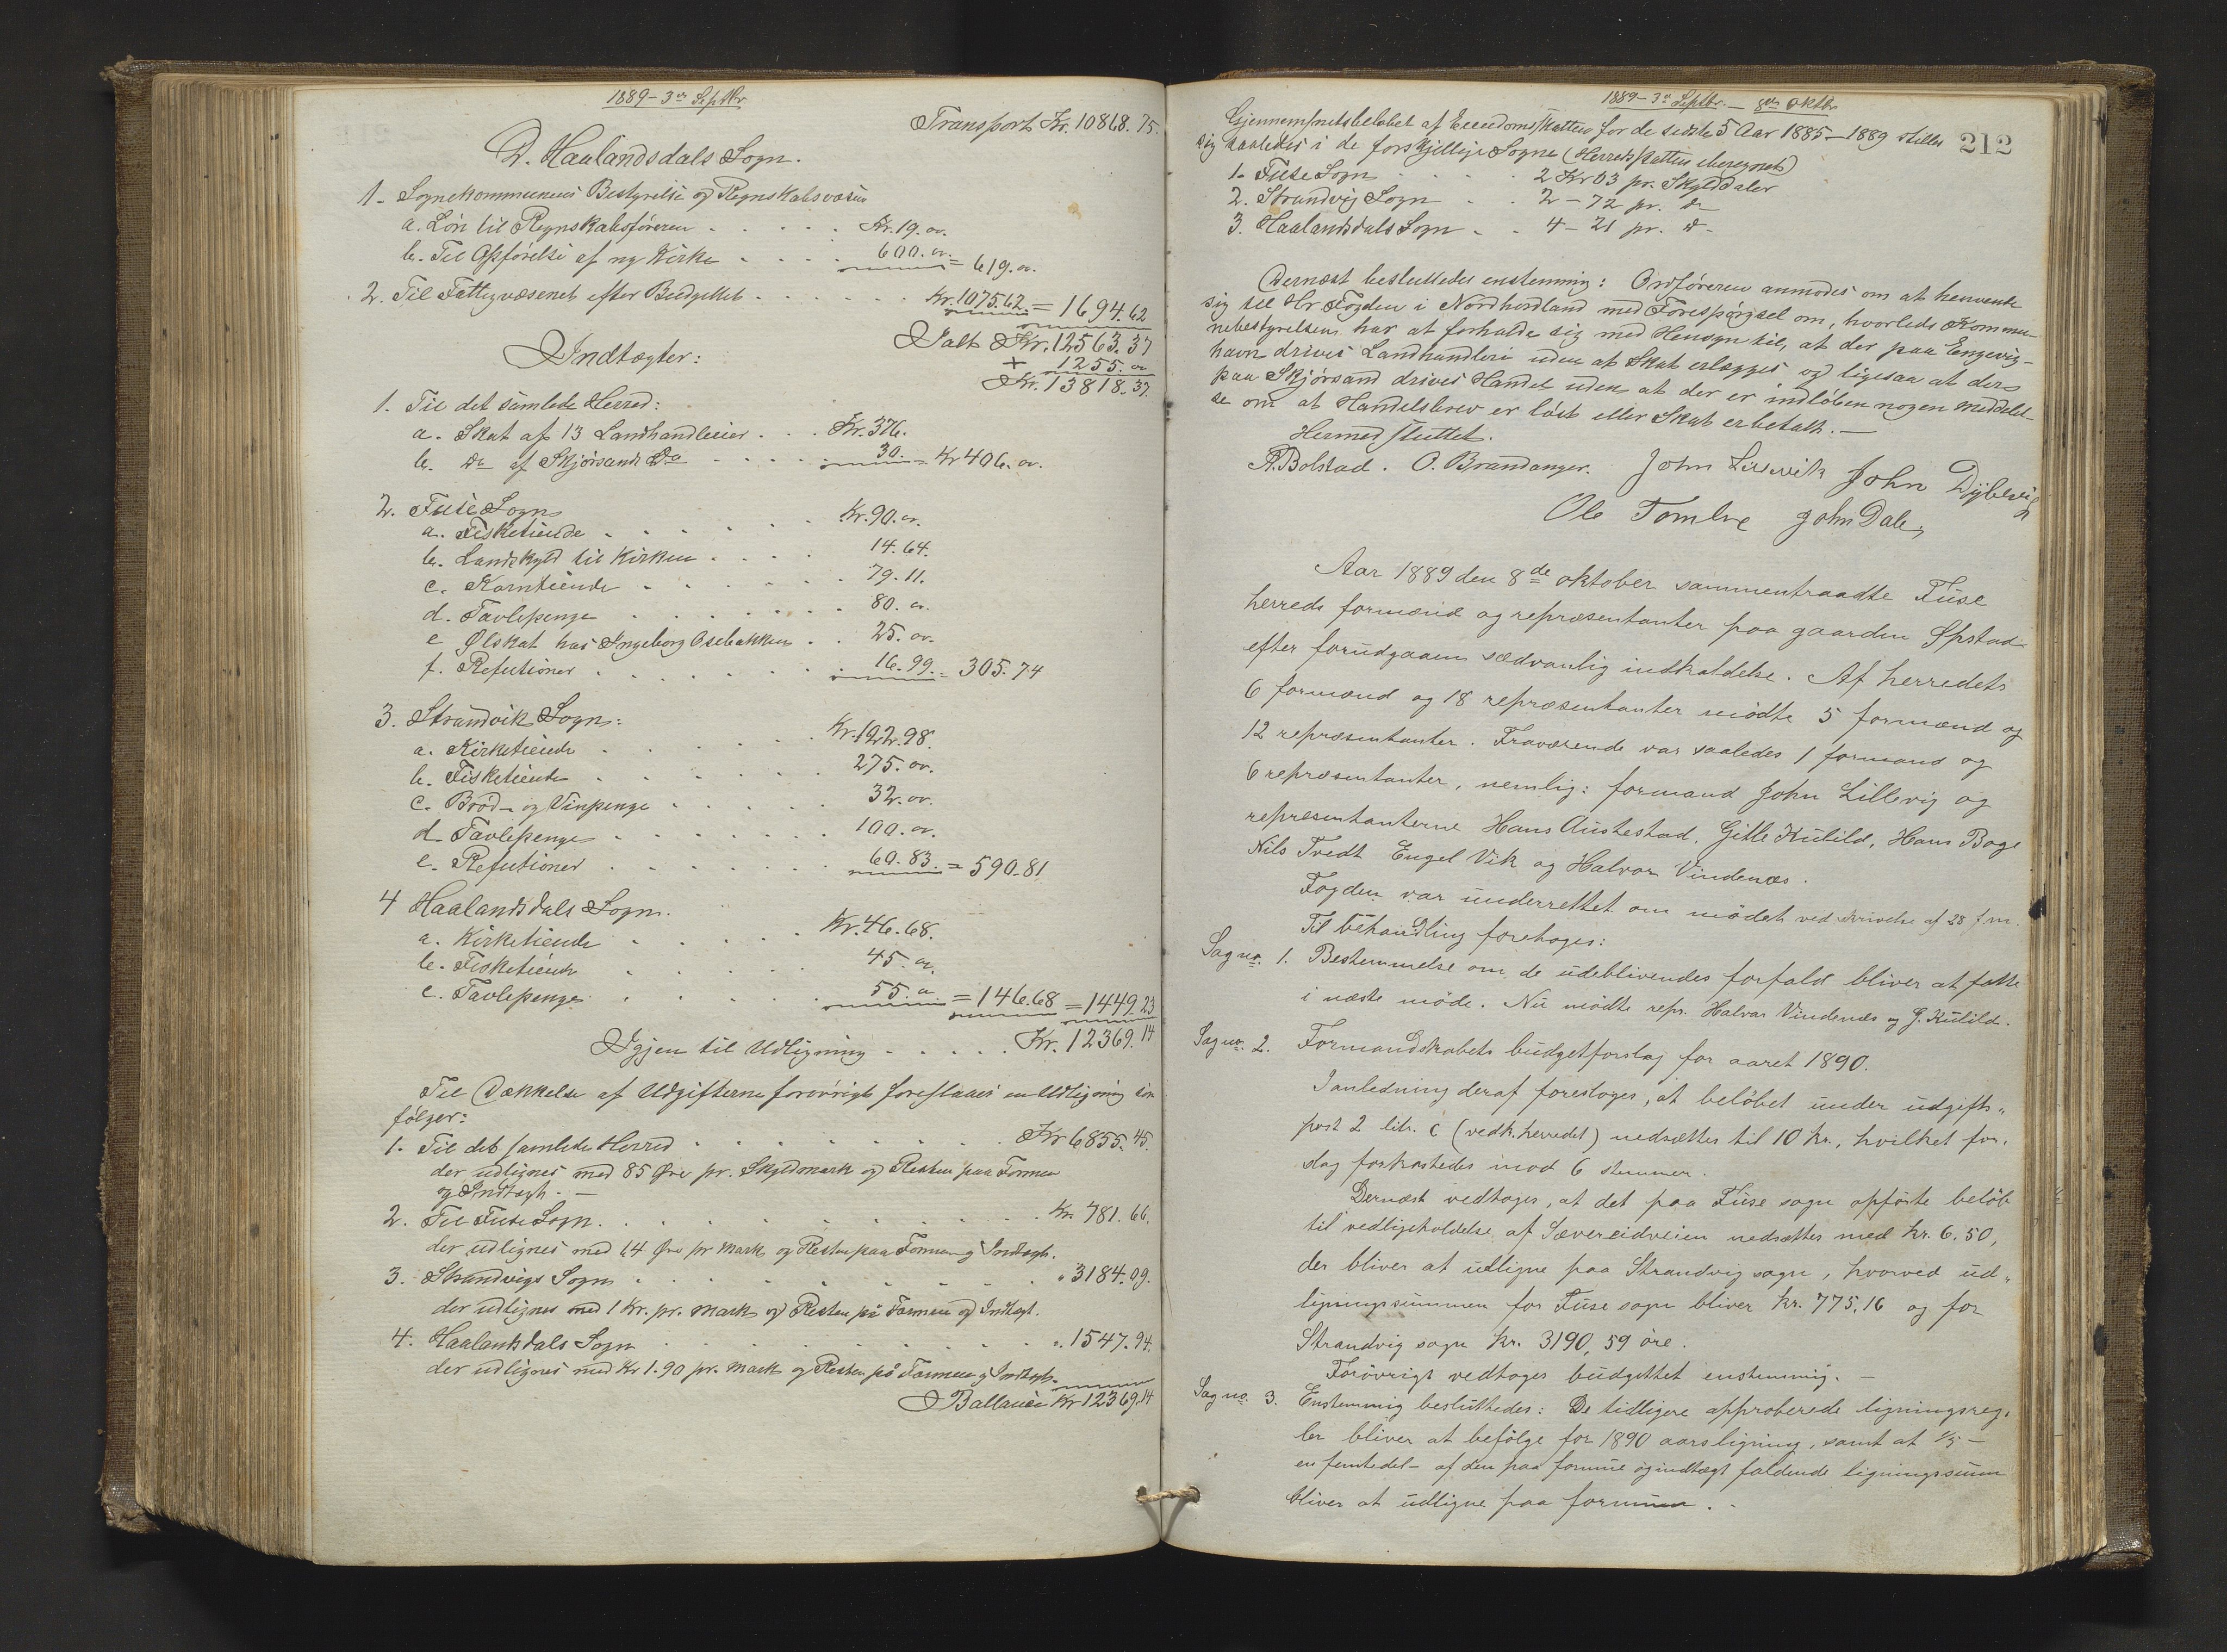 1889 - 3die Septbr.
Transport Kr. 10868.75.
D. Haalandsdals Sogn.
1. Sognekommunens Bestyrelse og Regnskabsvæsen
a. Løn til Regnskabsføreren . . . . . Kr. 19. or.
b. Til Opførelse af ny Kirke . . . . 600. or. = 619. or.
2. Til Fattigvæsenet efter Budgettet . . . . . . Kr. 1075.62. = 1694.62
Ialt Kr. 12563.37
+ 1255. or
Kr. 13818.37.
Indtægter:
1. Til det samlede Herred:
a. Skat af 13 Landhandlerier . . . Kr. 376.
b. Do af Skjørsands Do . . . . 30. = Kr 406. or.
2. Fuse Sogn
a. Fisketiende . . . . . . Kr. 90. or.
b. Landskyld til Kirken . . . . 14.64.
c. Korntiende . . . . . 79.11.
d. Tavlepenge . . . . . . . 80. or.
e Ølskat hos Ingeborg Osebakken . . 25. or.
f. Refutioner . . . . . . . 16.99. = 305.74
3. Strandvik Sogn:
a. Kirketiende . . . . . . Kr. 122.98.
b. Fisketiende . . . . . . 275. or.
c. Brød- og Vinpenge . . . . . 32. or.
d Tavlepenge . . . . . . . 100. or.
e. Refutioner . . . . . . 60.83. = 590.81
4 Haalandsdals Sogn.
a. Kirketiende . . . . . Kr. 46.68.
b. Fisketiende . . . . . 45. or.
c. Tavlepenge . . . . . 55. or = 146.68 = 1449.23
Igjen til Udligning . . . . . Kr. 12369.14
Til Dækkelse af Udgifterne forøvrigt foreslaaes en Udligning som
følger:
1. Til det samlede Herred . . . . . . . . . Kr 6855.45.
der udlignes med 85 Øre pr. Skyldmark og Resten paa Formue
og Indtægt. —
2. Til Fuse Sogn. . . . . . . . . . Kr. 781.66.
der udlignes med 64 Øre pr Mark og Resten paa Formue og Indtægt.
3. Strandvigs Sogn . . . . . . . . . " 3184.09.
der udlignes med 1 Kr. pr. Mark og Resten på Formue og Indtægt.
4. Haalandsdals Sogn . . . . . . . . . " 1547.94.
der udlignes med Kr 1.90 pr. Mark og Resten på Formue og Indtægt.
Ballance Kr 12369.14
1889 - 3die Septbr. — 8de Oktbr
212
Gjennemsnitsbeløbet af Eiendomsskatten for de sidste 5 Aar 1885 - 1889 stiller
sig saaledes i de forskjellige Sogne (Herredsskatten iberegnet)
1. Fuse Sogn . . . . 2 Kr 03 pr. Skylddaler
2. Strandvig Sogn . . 2 - 72 pr. do
3. Haalandsdals Sogn . . 4 - 21 pr. do
Dernæst besluttedes enstemmig: Ordføreren anmodes om at henvende
sig til Hr Fogden i Nordhordland med Forespørgsel om, hvorledes Kommu-
nebestyrelsen har at forholde sig med Hensyn til, at der paa Engevig-
havn drives Landhandleri uden at Skat erlægges og ligesaa at der
paa Skjørsand drives Handel uden at der er indløben nogen Meddelel-
se om at Handelsbrev er løst eller Skat er betalt. —
Hermed sluttet.
A. Bolstad. O. Brandanger. John Lillevik John Dybevig
Ole Tombre John Dale,
Aar 1889 den 8de oktober sammentraadte Fuse
herreds formænd og repræsentanter paa gaarden Opstad
efter forudgaaen sædvanlig indkaldelse. Af herredets
6 formænd og 18 repræsentanter mødte 5 formænd og
12 repræsentanter. Fraværende var saaledes 1 formand og
6 repræsentanter, nemlig: formand John Lillevig og
repræsentanterne Hans Austestad, Gitle Kulild, Hans Boge
Nils Tvedt Engel Vik og Halvor Vindenæs.
Fogden var underrettet om mødet ved skrivelse af 28 f. m.
Til behandling foretoges:
Sag no. 1. Bestemmelse om de udeblivendes forfald bliver at fatte
i næste møde. Nu mødte repr. Halvor Vindenæs og G. Kulild.
Sag no. 2. Formandskabets budgetforslag for aaret 1890.
I anledning deraf foresloges, at beløbet under udgifts-
post 2 litr. c (vedk. herredet) nedsættes til 10 kr., hvilket for-
slag forkastedes mod 6 stemmer.
Dernæst vedtoges, at det paa Fuse sogn opførte beløb
til vedligeholdelse af Sævereidveien nedsættes med kr. 6.50,
der bliver at udligne paa Strandvig sogn, hvorved ud-
ligningssummen for Fuse sogn bliver kr. 775,16 og for
Strandvig sogn kr. 3190,59 øre.
Forøvrigt vedtoges budgettet enstemmig. —
Sag no. 3. Enstemmig besluttedes: De tidligere approberede ligningsreg-
ler bliver at befølge for 1890 aars ligning, samt at 1/5 —
en femtedel — af den paa formue og indtægt faldende ligningssum
bliver at udligne paa formuen. -